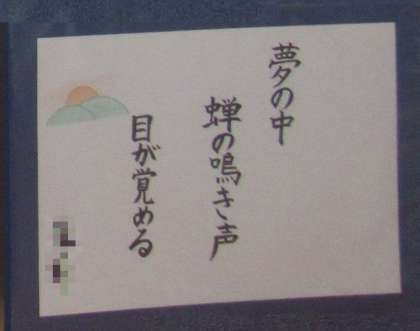 夢の中
蝉の鳴き声
目が覚める